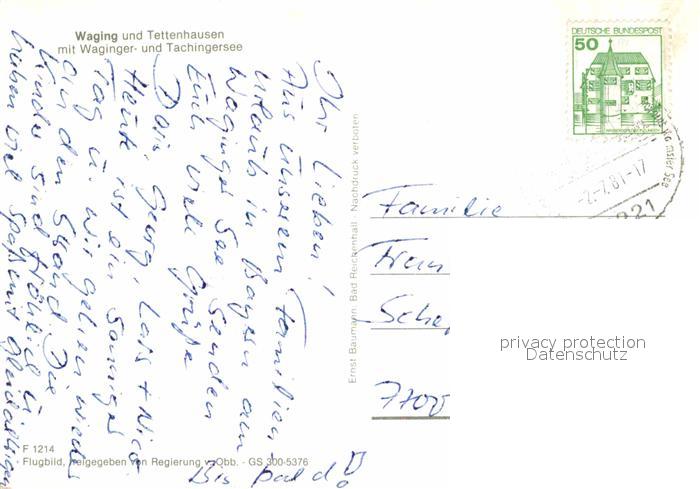 Waging und Tettenhausen
mit Waginger- und Tachingersee
Ihr Lieben!
Aus unserem Familien-
urlaub in Bayern am
Waginger See senden
Euch viele Grüße
Georg, Lars + Nico
Heute ist ein sonniger
Tag u. wir gehen wieder
an den Strand. Die
Kinder sind fröhlich u.
haben viel Spaß mit gleichaltrigen
Bis bald!
F 1214
Flugbild, freigegeben von Regierung v. Obb. - GS 300-5376
Ernst Baumann, Bad Reichenhall Nachdruck verboten
DEUTSCHE BUNDESPOST
50
-2.-7.81-17
221
Familie
Fran
Sche
7700
privacy protection
Datenschutz